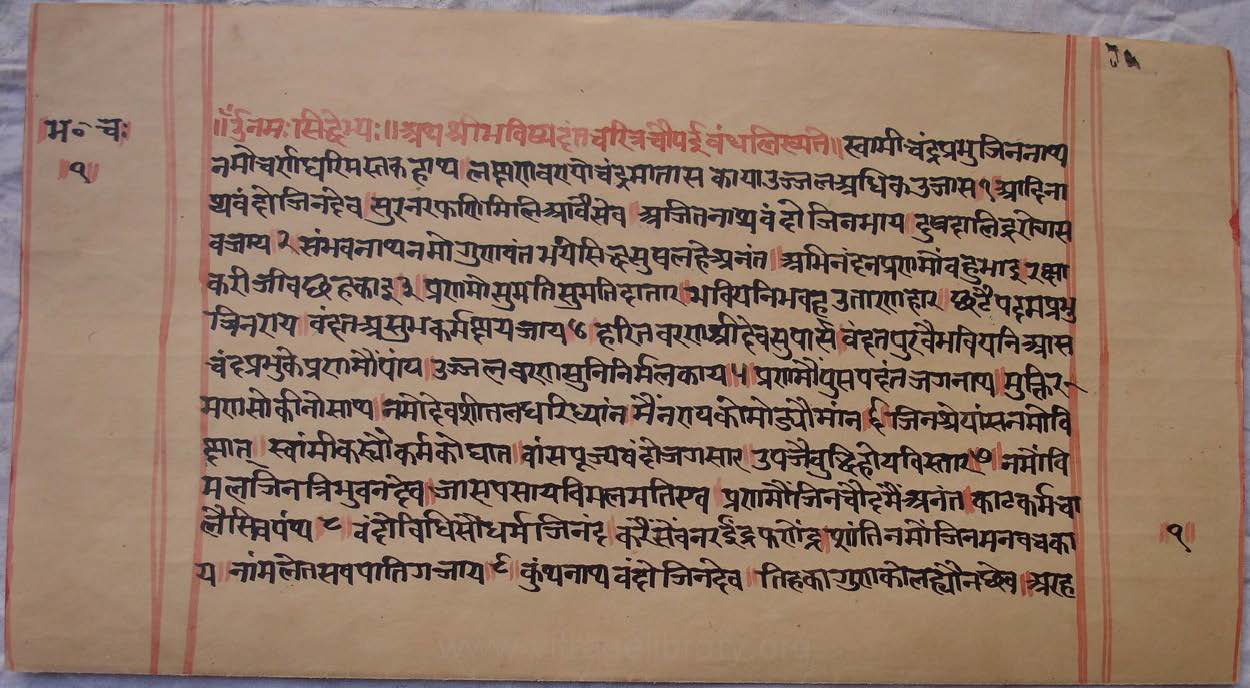 भ॰ च॰
१
॥ॐ नमः सिद्धेभ्यः॥ अथ श्रीभविष्यदंतचरित्रचौपई बंध लिख्यते॥ स्वामी चंद्रप्रभु जिननाथ
नमौ चर्ण धरि मस्तक हाथ लक्षण वरण्यो चंद्रमा तास काया उज्जल अधिक उजास १ आदिना
थ वंदौ जिनदेव सुरनरफणि मिलि आवै सेव अजितनाथ वंदौ जिनभाय दुखदालिद्र रोग स
व जाय २ संभवनाथ नमो गुणवंत भये सिद्ध सुष लहै अनंत अभिनंदन प्रणमौं बहु भाइ रक्षा
करी जीव छह काइ ३ प्रणमौ सुमति सुमति दातार भवियनि भवह उतारणहार छठै पदमप्रभु
जिनराय वंदत असुभ कर्म क्षय जाय ४ हरित वरण श्रीदेव सुपार्स वंदत पुरवै भवियनि आस
चंदप्रभु के प्रणमौं पांय उज्जल वरण सु निर्मल काय ५ प्रणमौं पुसपदंत जगनाथ मुक्ति र
मण सो कीनौ साथ नमो देव शीतल धरि ध्यांन मैंनराय को मोड्यौ मांन ६ जिन श्रेयांस नमो वि
ष्यात् स्वांमी कस्यौ कर्म कौ घात वांसपूज्य वंदौ जग सार उपजै बुद्धि होय विस्तार ७ नमौं वि
मल जिन त्रिभुवनदेव जास पसाय विमल मति एव प्रणमौं जिन चौदमैं अनंत काट कर्म चा
लै सिव पंथ ८ वंदौ विधि सौ धर्म जिनंद करै सेव नर इंद्र फणेंद्र शांति नमौं जिन मन वच का
य नांम लेत सव पातिग जाय ९ कुंथनाथ वंदौ जिनदेव तिहका गुण को लह्यौ न छेव अरह
१